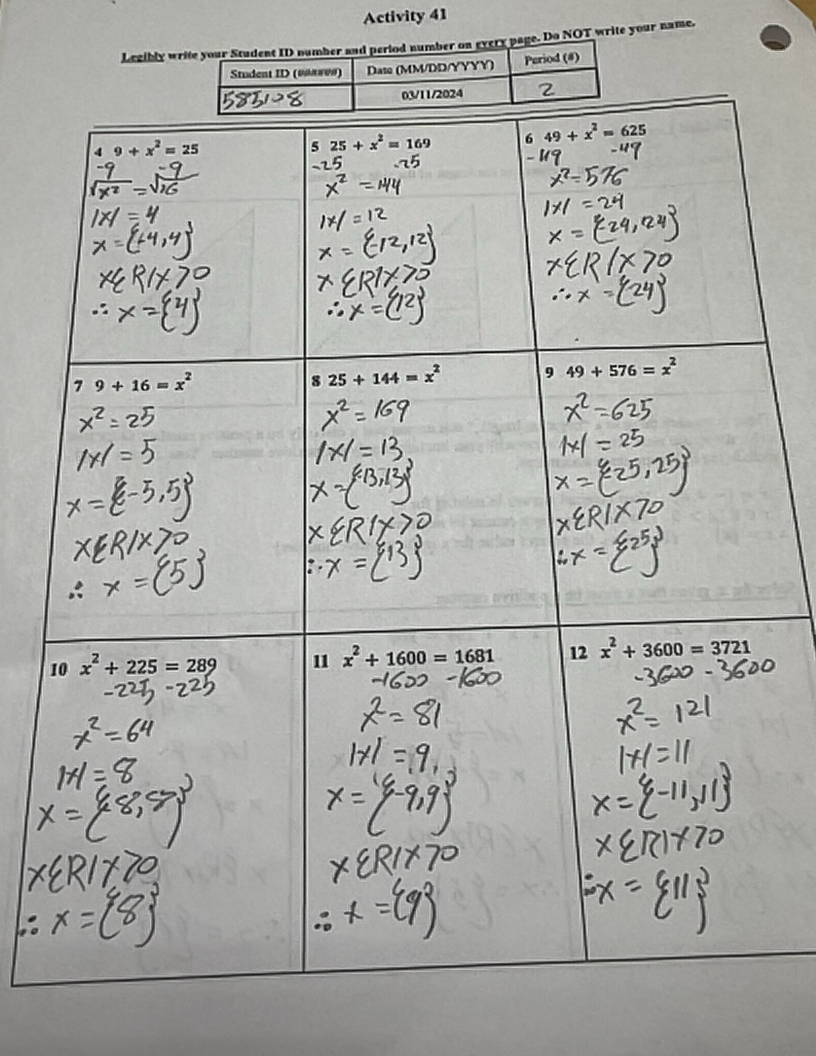 Activity 41
Legibly write your Student ID number and period number on every page. Do NOT write your name.
Student ID (######) Date (MM/DD/YYYY) Period (#)
585108 03/11/2024 2
4 9 + x² = 25
-9 -9
√x² = √16
|x| = 4
x = {-4,4}
x∈R|x>0
∴ x = {4}
5 25 + x² = 169
-25 -25
x² = 144
|x| = 12
x = {-12,12}
x∈R|x>0
∴ x = {12}
6 49 + x² = 625
-49 -49
x² = 576
|x| = 24
x = {-24,24}
x∈R|x>0
∴ x = {24}
7 9 + 16 = x²
x² = 25
|x| = 5
x = {-5,5}
x∈R|x>0
∴ x = {5}
8 25 + 144 = x²
x² = 169
|x| = 13
x = {-13,13}
x∈R|x>0
∴ x = {13}
9 49 + 576 = x²
x² = 625
|x| = 25
x = {-25,25}
x∈R|x>0
∴ x = {25}
10 x² + 225 = 289
-225 -225
x² = 64
|x| = 8
x = {-8,8}
x∈R|x>0
∴ x = {8}
11 x² + 1600 = 1681
-1600 -1600
x² = 81
|x| = 9
x = {-9,9}
x∈R|x>0
∴ x = {9}
12 x² + 3600 = 3721
-3600 -3600
x² = 121
|x| = 11
x = {-11,11}
x∈R|x>0
∴ x = {11}